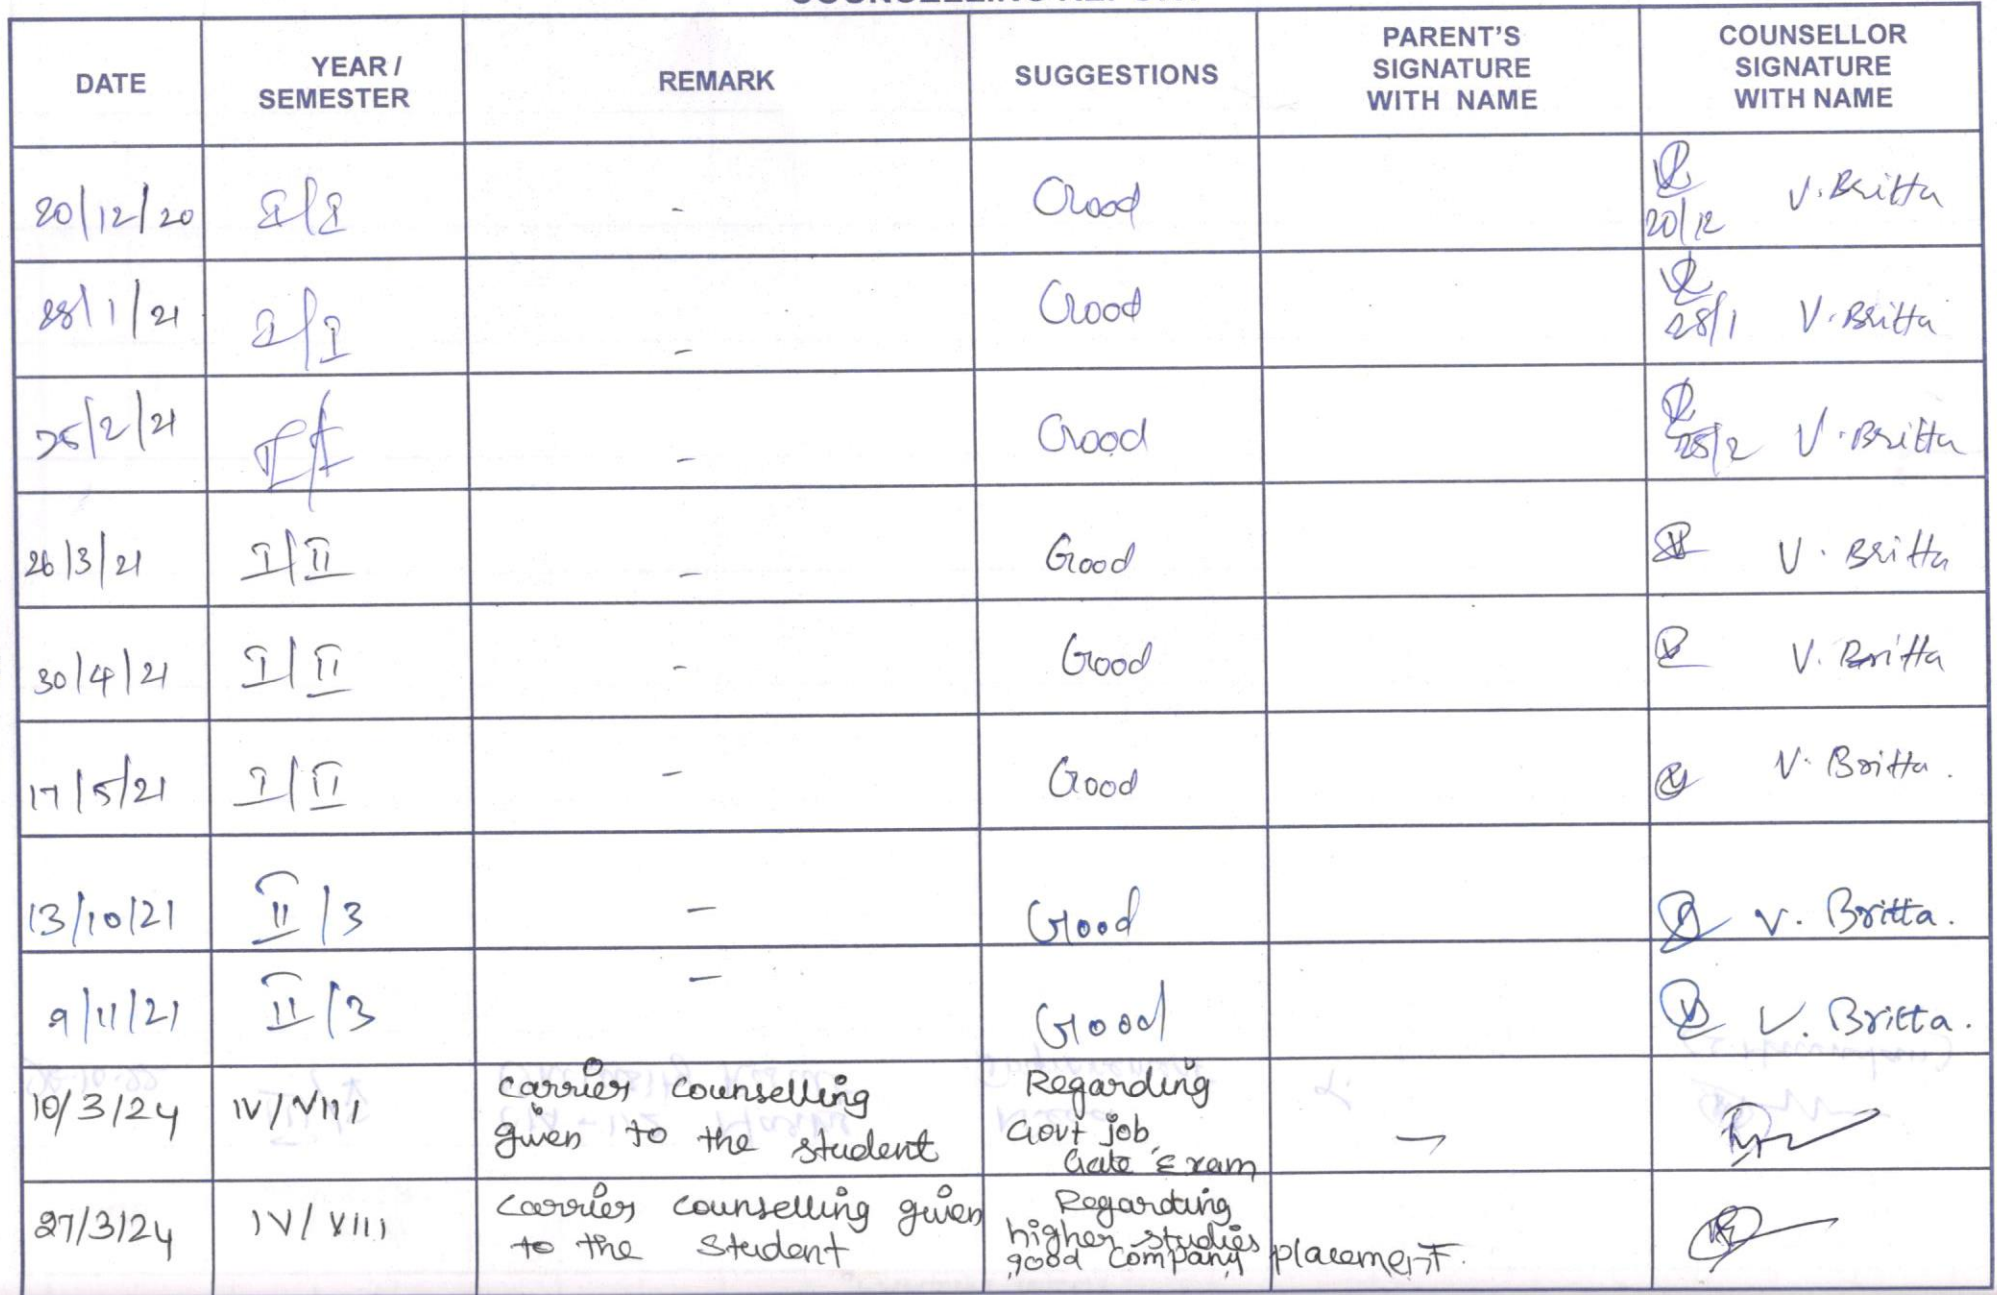 DATE
YEAR /
SEMESTER
REMARK
SUGGESTIONS
PARENT'S
SIGNATURE
WITH NAME
COUNSELLOR
SIGNATURE
WITH NAME
20/12/20 I/I - Good 20/12 V. Britta
28/1/21 I/I - Good 28/1 V. Britta
25/2/21 I/I - Good 25/2 V. Britta
26/3/21 I/II - Good V. Britta
30/4/21 I/II - Good V. Britta
17/5/21 I/II - Good V. Britta.
13/10/21 II/3 - Good V. Britta.
9/11/21 II/3 - Good V. Britta.
10/3/24 IV/VIII
carrier counselling
given to the student
Regarding
Govt job,
Gate Exam
-
27/3/24 IV/VIII
carrier counselling given
to the student
Regarding
higher studies
good company placement.